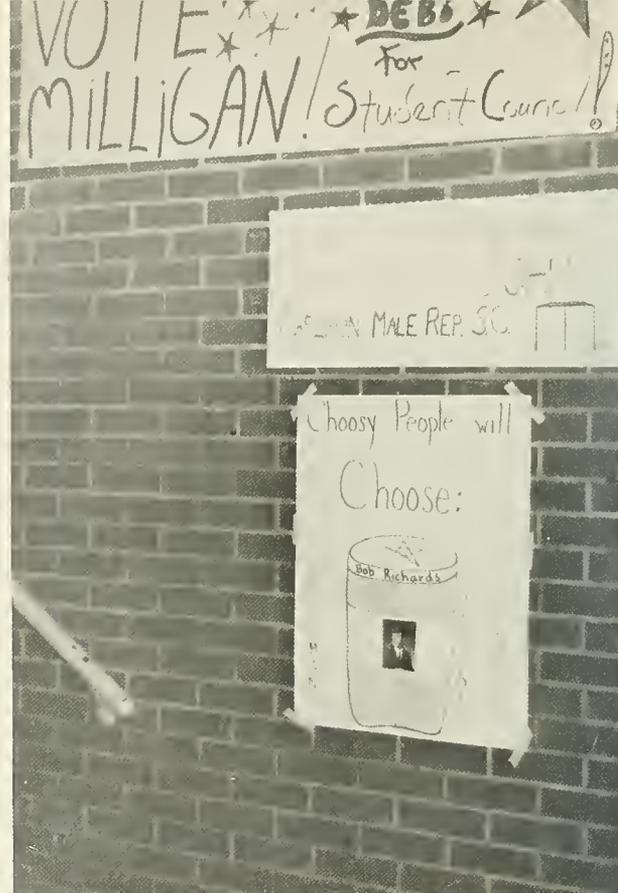 VOTE
MILLIGAN!
DEBS
For
Student Council!
MALE REP. S.C.
Choosy People will
Choose:
Bob Richards